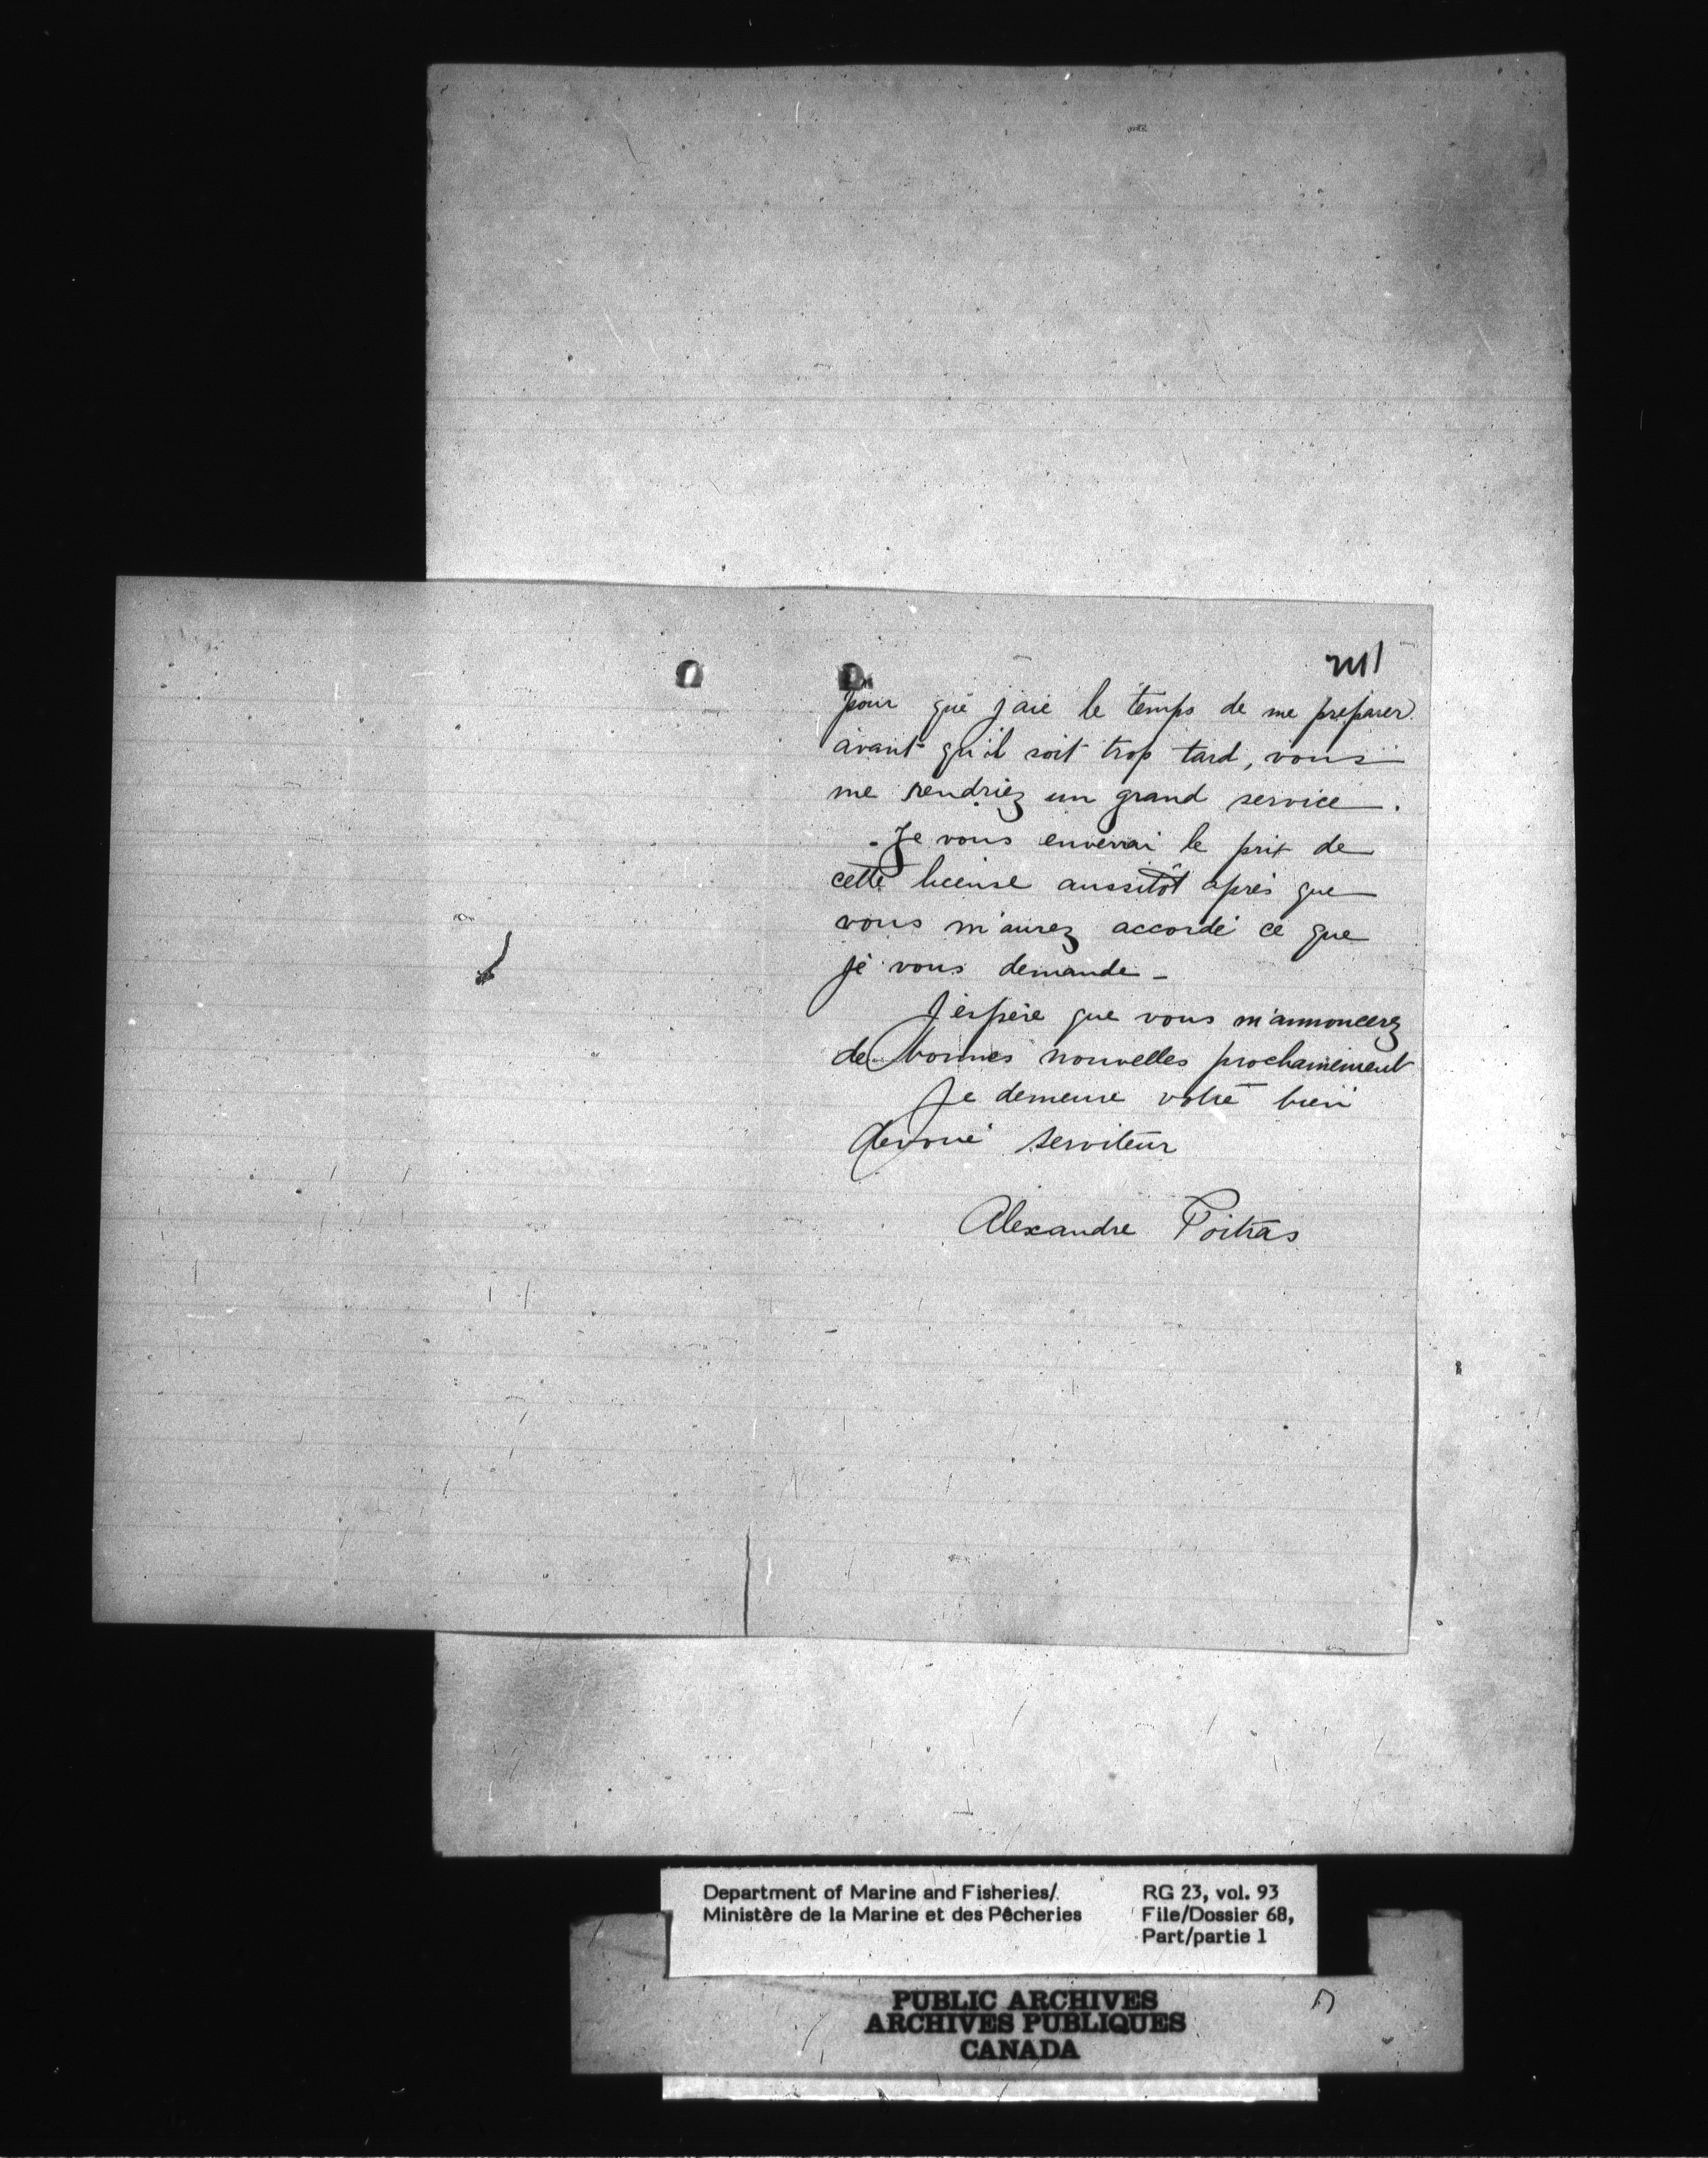 pour que j'aie le temps de me preparer
avant qu'il soit trop tard, vous
me rendriez un grand service.
Je vous enverrai le prix de
cette license aussitôt après que
vous m'aurez accordé ce que
je vous demande -
J'espère que vous m'annoncerez
de bonnes nouvelles prochainement
Je demeure votre bien
devoué serviteur
Alexandre Poitras
Department of Marine and Fisheries/
Ministère de la Marine et des Pêcheries
RG 23, vol. 93
File/Dossier 68,
Part/partie 1
PUBLIC ARCHIVES
ARCHIVES PUBLIQUES
CANADA